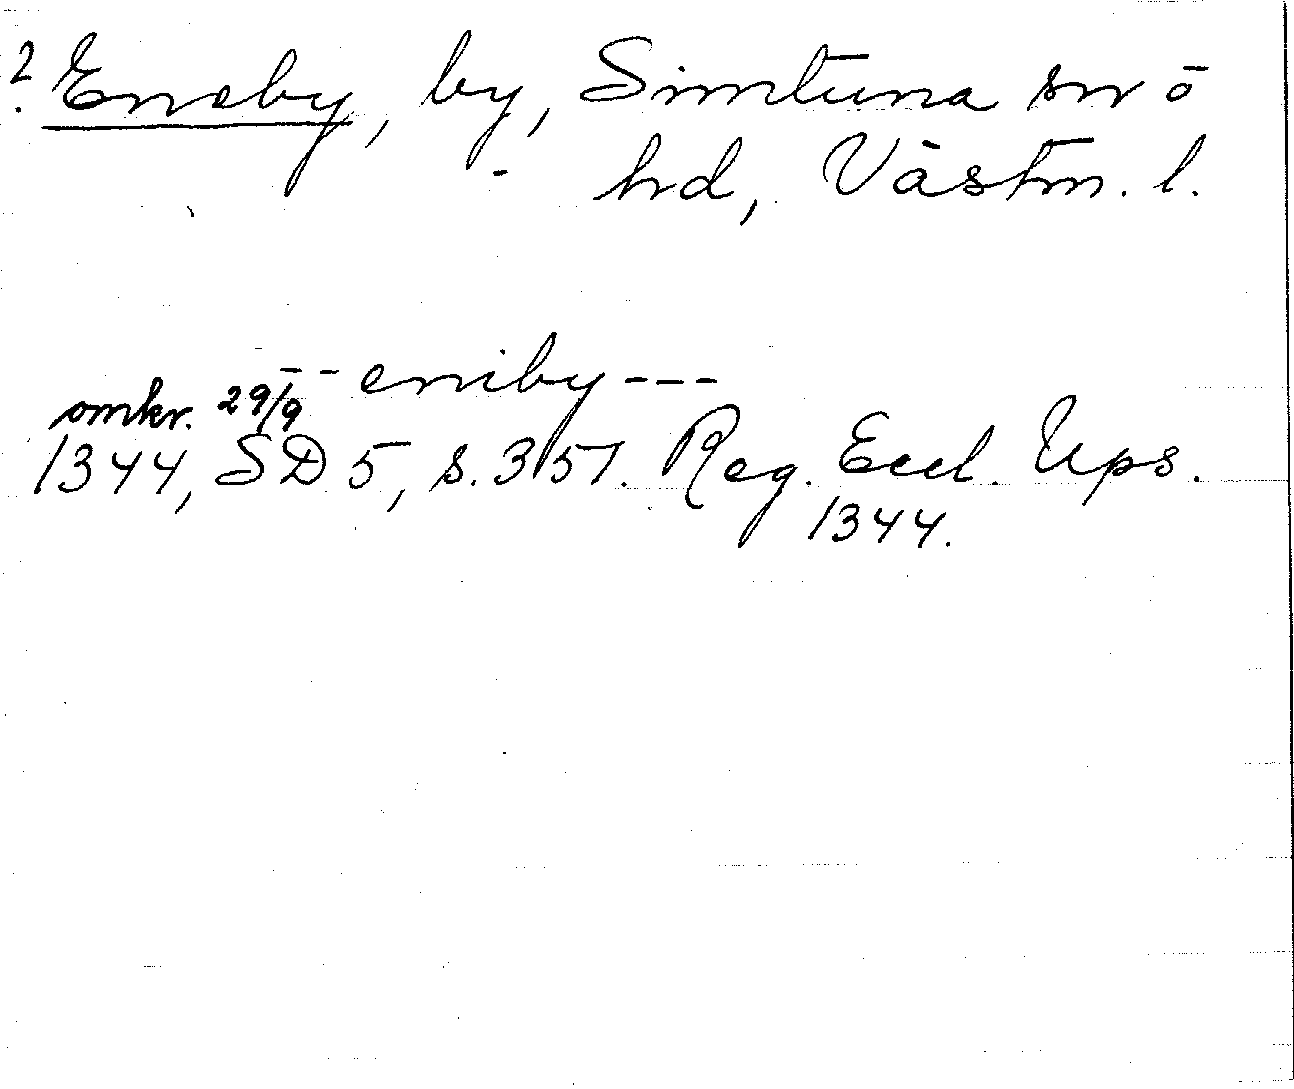 ? Eneby, by, Simtuna sn o
hd, Västm. l.
--- eniby ---
omkr. 29/9
1344, SD 5, s. 351. Reg. Eccl. Ups.
1344.